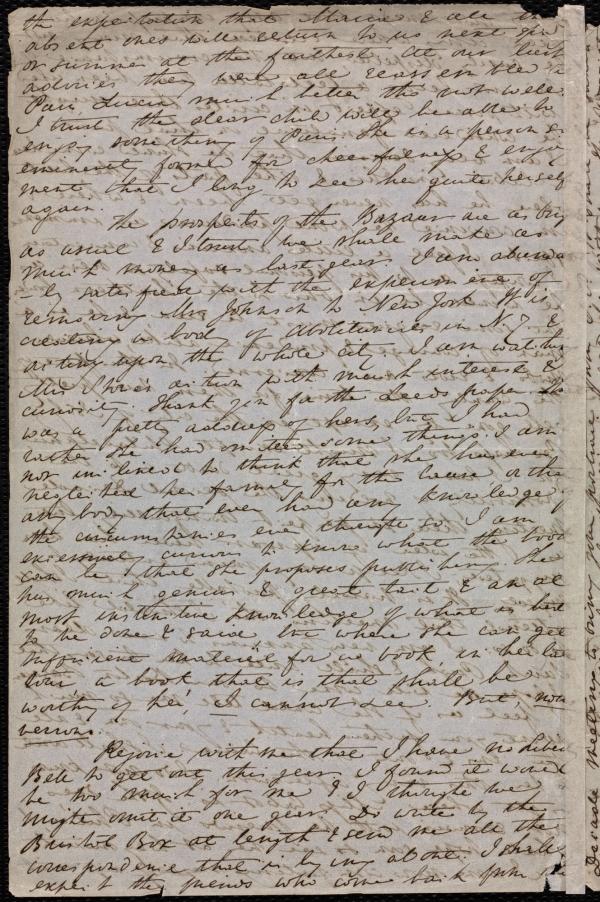 the expectation that Maria & all the
absent ones will return to us next spring
or summer at the farthest. At our last
advices they were all reassembled in
Paris Susan much better tho' not well.
I trust the dear child will be able to
enjoy something of Paris. She is a person so
eminent formed for cheerfulness & enjoy
ment that I long to see her quite herself
again.
The prospects of the Bazaar are as
as usual & I trust we shall make as
much money as last year. I am abundant
-ly satisfied with the experiment of
removing Mr Johnson to New York. It is
creating a body of Abolitionists in N.Y. &
acting upon the whole city. I am watching
Mrs action with much interest &
curiosity. Thank you for the Leeds paper. It
was a pretty address of hers, but I had
rather she had omitted some things. I am
not inclined to think that she has ever
neglected her family for the Cause or that
any body that ever had any knowledge of
the circumstances ever thought so. I am
excessively curious to know what the book
can be that she proposes publishing. She
has much genius & great tact & an al
most instinctive knowledge of what is best
to be done & said but where she can get
sufficient materiel for a book, in her
tour a book that is that shall be
worthy of her, I cannot see. But, nous
verrons.
Rejoice with me that I have no Liberty
Bell to get out this year. I found it would
be too much for me & I thought we
might omit it one year. Do write by the
Bristol Box at length & send me all the
correspondence that is lying about. I shall
expect the friends who come back from the